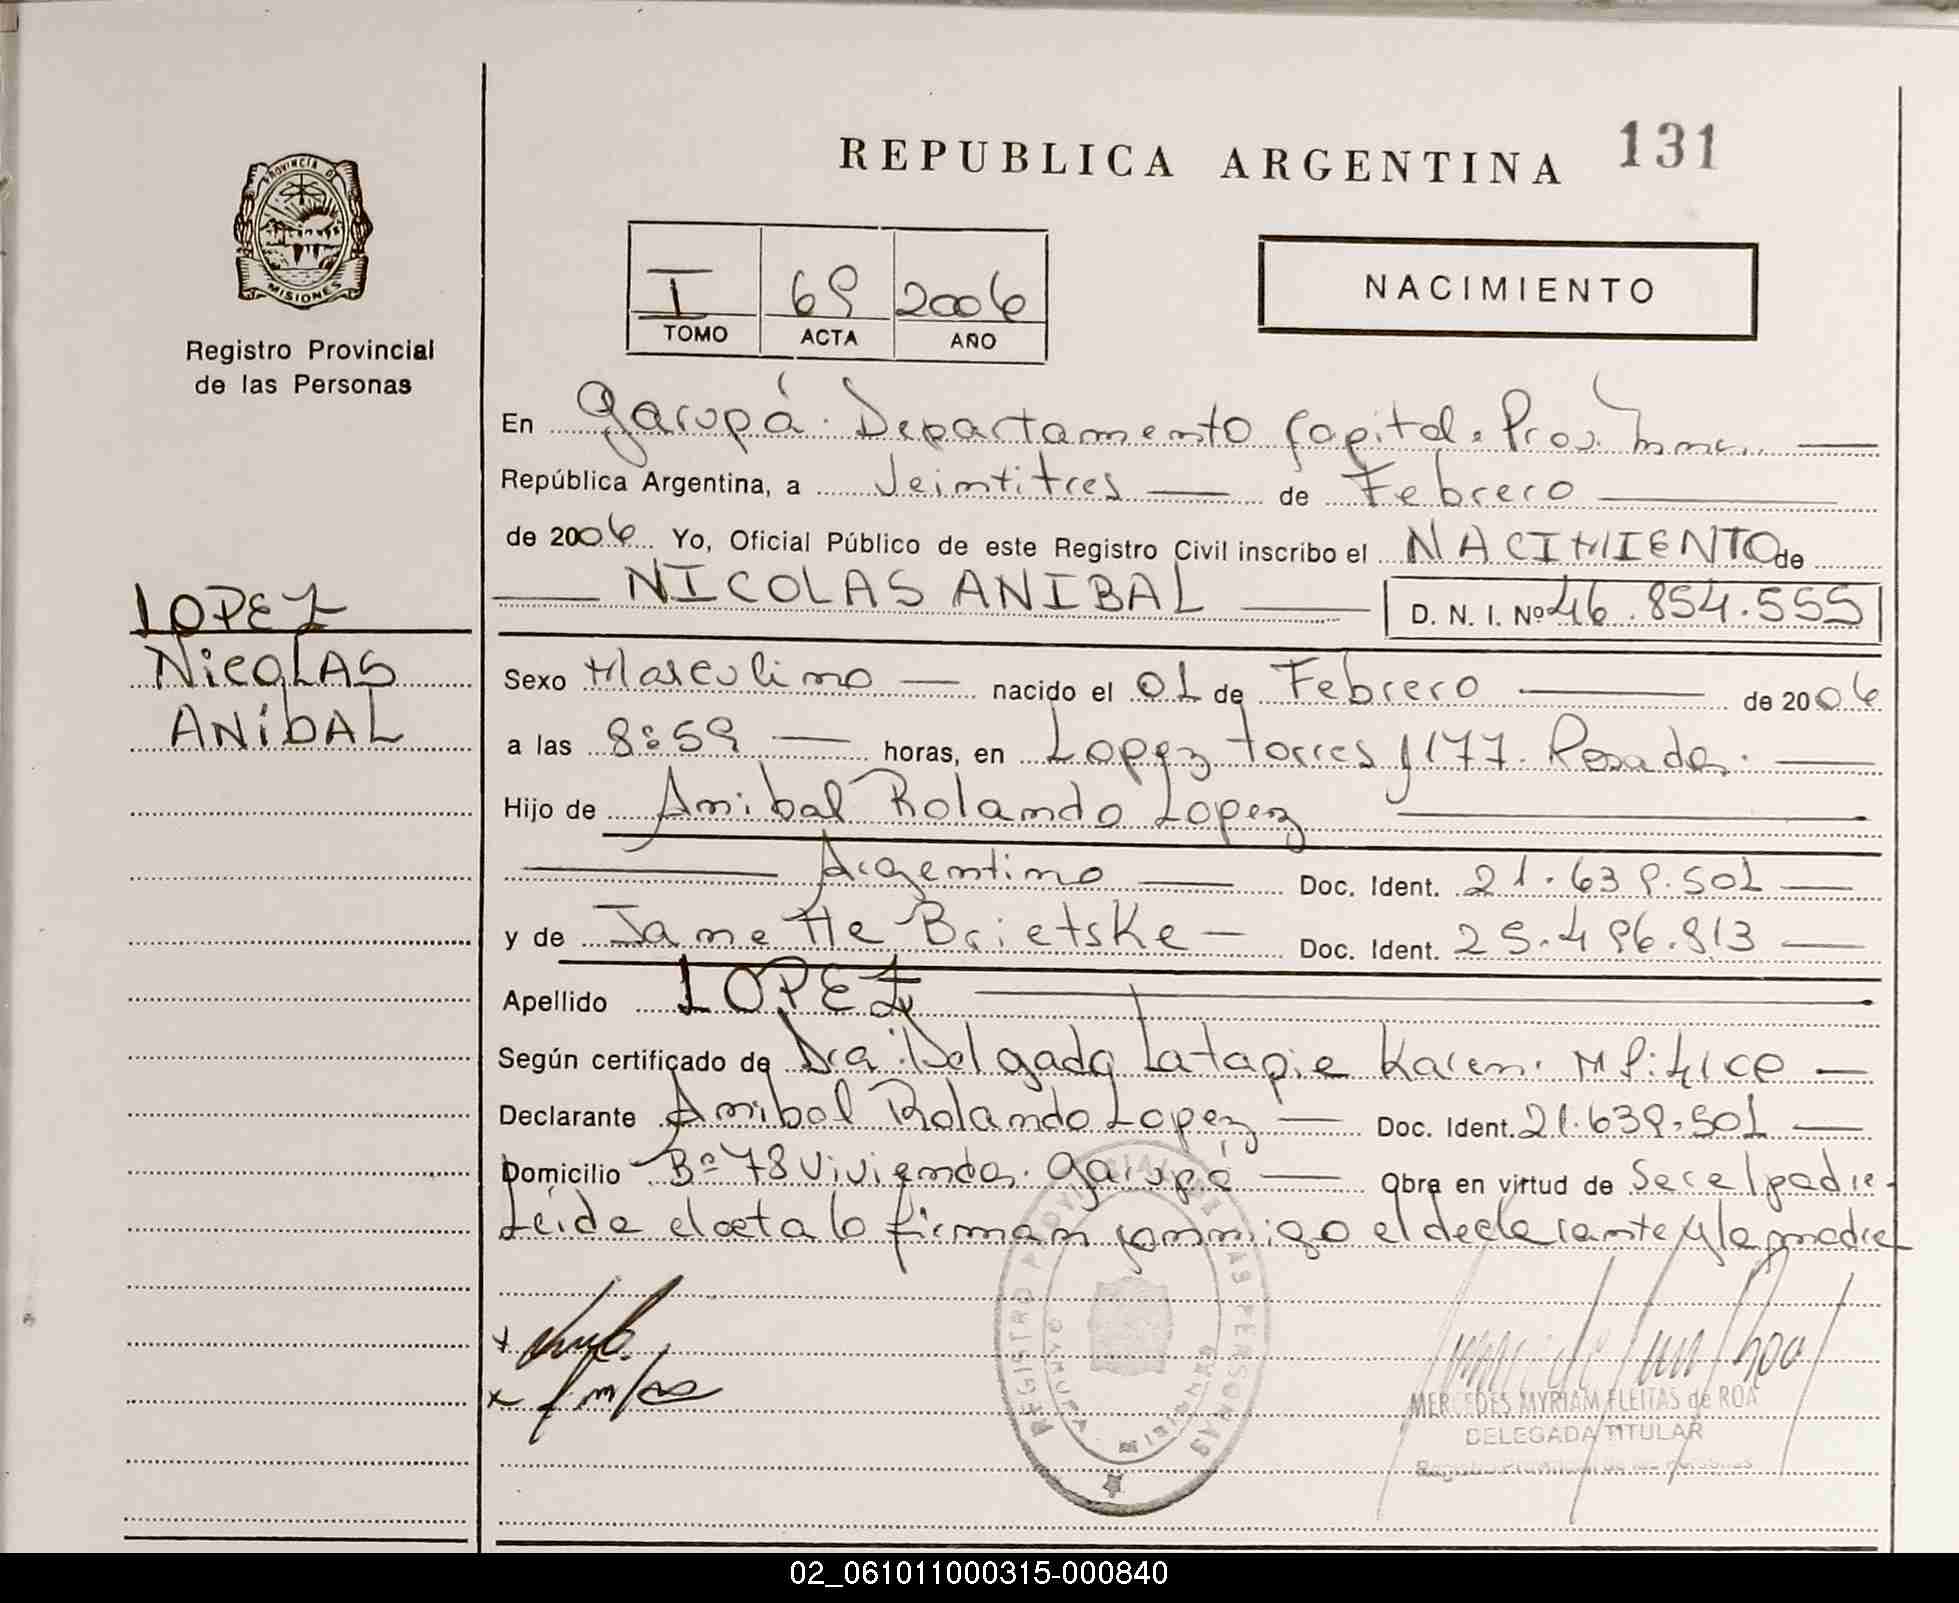 REPUBLICA ARGENTINA 131
PROVINCIA DE
MISIONES
Registro Provincial
de las Personas
I 69 2006
TOMO ACTA AÑO
NACIMIENTO
LOPEZ
NicoLAS
ANíbAL
En Garupá. Departamento Capital. Prov. Mnes.
República Argentina, a Veintitres de Febrero
de 2006 Yo, Oficial Público de este Registro Civil inscribo el NACIMIENTO de
NICOLAS ANIBAL D. N. I. Nº 46.854.555
Sexo Masculino nacido el 01 de Febrero de 2006
a las 8:59 horas, en Lopez Torres 1177. Posadas.
Hijo de Anibal Rolando Lopez
Argentino Doc. Ident. 21.639.501
y de Janette Brietske Doc. Ident. 25.496.913
Apellido LOPEZ
Según certificado de Dra. Delgado Latapie Karen.
Declarante Anibal Rolando Lopez Doc. Ident. 21.639.501
Domicilio Bº 78 Viviendas. Garupá Obra en virtud de Ser el padre.
Leida el acta la firman conmigo el declarante y la madre
REGISTRO PROVINCIAL DE LAS PERSONAS
MISIONES
MERCEDES MYRIAM FLEITAS de ROA
DELEGADA TITULAR
Registro Provincial de las Personas
02_061011000315-000840